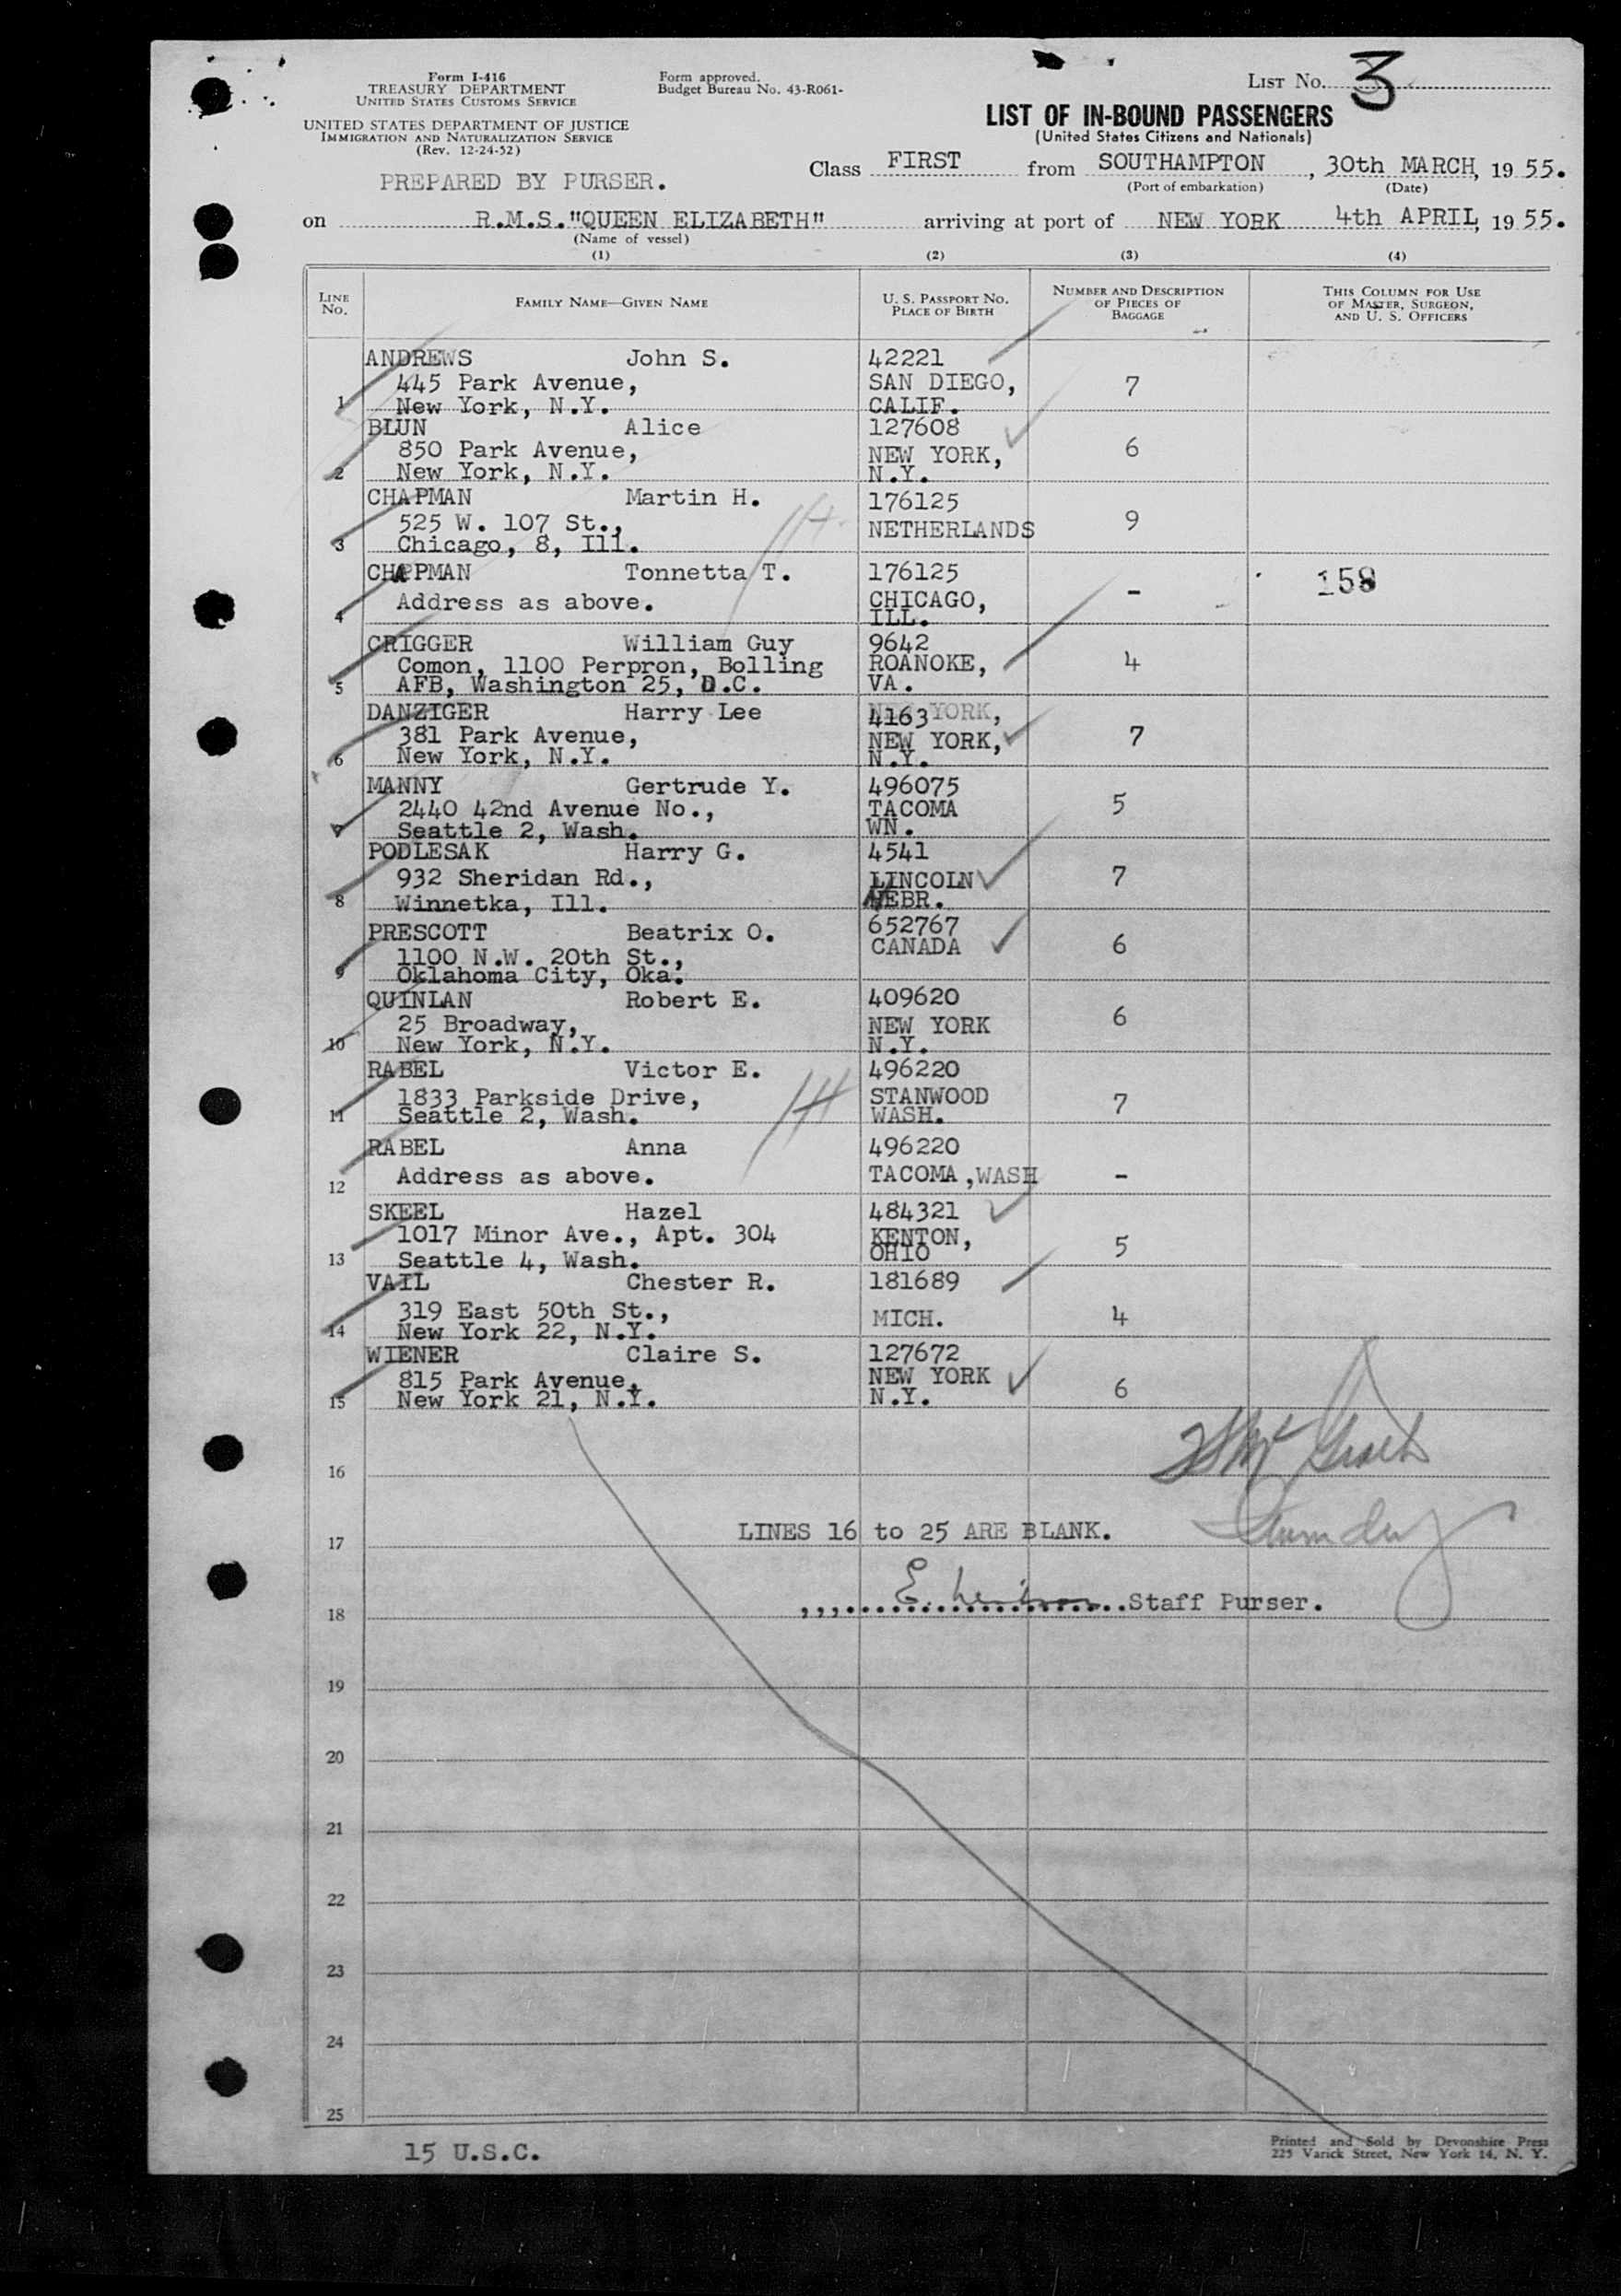 Form I-416
TREASURY DEPARTMENT
UNITED STATES CUSTOMS SERVICE
UNITED STATES DEPARTMENT OF JUSTICE
IMMIGRATION AND NATURALIZATION SERVICE
(Rev. 12-24-52)
Form approved.
Budget Bureau No. 43-R061-
LIST NO. 3
LIST OF IN-BOUND PASSENGERS
(United States Citizens and Nationals)
PREPARED BY PURSER.
Class FIRST from SOUTHAMPTON, 30th MARCH, 1955.
(Port of embarkation) (Date)
on R.M.S."QUEEN ELIZABETH" arriving at port of NEW YORK 4th APRIL, 1955.
(Name of vessel)
(1) (2) (3) (4)
LINE NO. FAMILY NAME—GIVEN NAME U. S. PASSPORT NO. PLACE OF BIRTH NUMBER AND DESCRIPTION OF PIECES OF BAGGAGE THIS COLUMN FOR USE OF MASTER, SURGEON, AND U. S. OFFICERS
ANDREWS John S. 42221
445 Park Avenue, SAN DIEGO, 7
1 New York, N.Y. CALIF.
BLUN Alice 127608
850 Park Avenue, NEW YORK, 6
2 New York, N.Y. N.Y.
CHAPMAN Martin H. 176125
525 W. 107 St., NETHERLANDS 9
3 Chicago, 8, Ill.
CHAPMAN Tonnetta T. 176125 158
Address as above. CHICAGO, -
4 ILL.
CRIGGER William Guy 9642
Comon, 1100 Perpron, Bolling ROANOKE, 4
5 AFB, Washington 25, D.C. VA.
DANZIGER Harry Lee 4163
381 Park Avenue, NEW YORK, 7
6 New York, N.Y. N.Y.
MANNY Gertrude Y. 496075
2440 42nd Avenue No., TACOMA 5
7 Seattle 2, Wash. WN.
PODLESAK Harry G. 4541
932 Sheridan Rd., LINCOLN 7
8 Winnetka, Ill. NEBR.
PRESCOTT Beatrix O. 652767
1100 N.W. 20th St., CANADA 6
9 Oklahoma City, Oka.
QUINLAN Robert E. 409620
25 Broadway, NEW YORK 6
10 New York, N.Y. N.Y.
RABEL Victor E. 496220
1833 Parkside Drive, STANWOOD 7
11 Seattle 2, Wash. WASH.
RABEL Anna 496220
Address as above. TACOMA,WASH -
12
SKEEL Hazel 484321
1017 Minor Ave., Apt. 304 KENTON, 5
13 Seattle 4, Wash. OHIO
VAIL Chester R. 181689
319 East 50th St., MICH. 4
14 New York 22, N.Y.
WIENER Claire S. 127672
815 Park Avenue, NEW YORK 6
15 New York 21, N.Y. N.Y.
16
17 LINES 16 to 25 ARE BLANK.
18 Staff Purser.
19
20
21
22
23
24
25
15 U.S.C.
Printed and Sold by Devonshire Press
225 Varick Street, New York 14, N. Y.